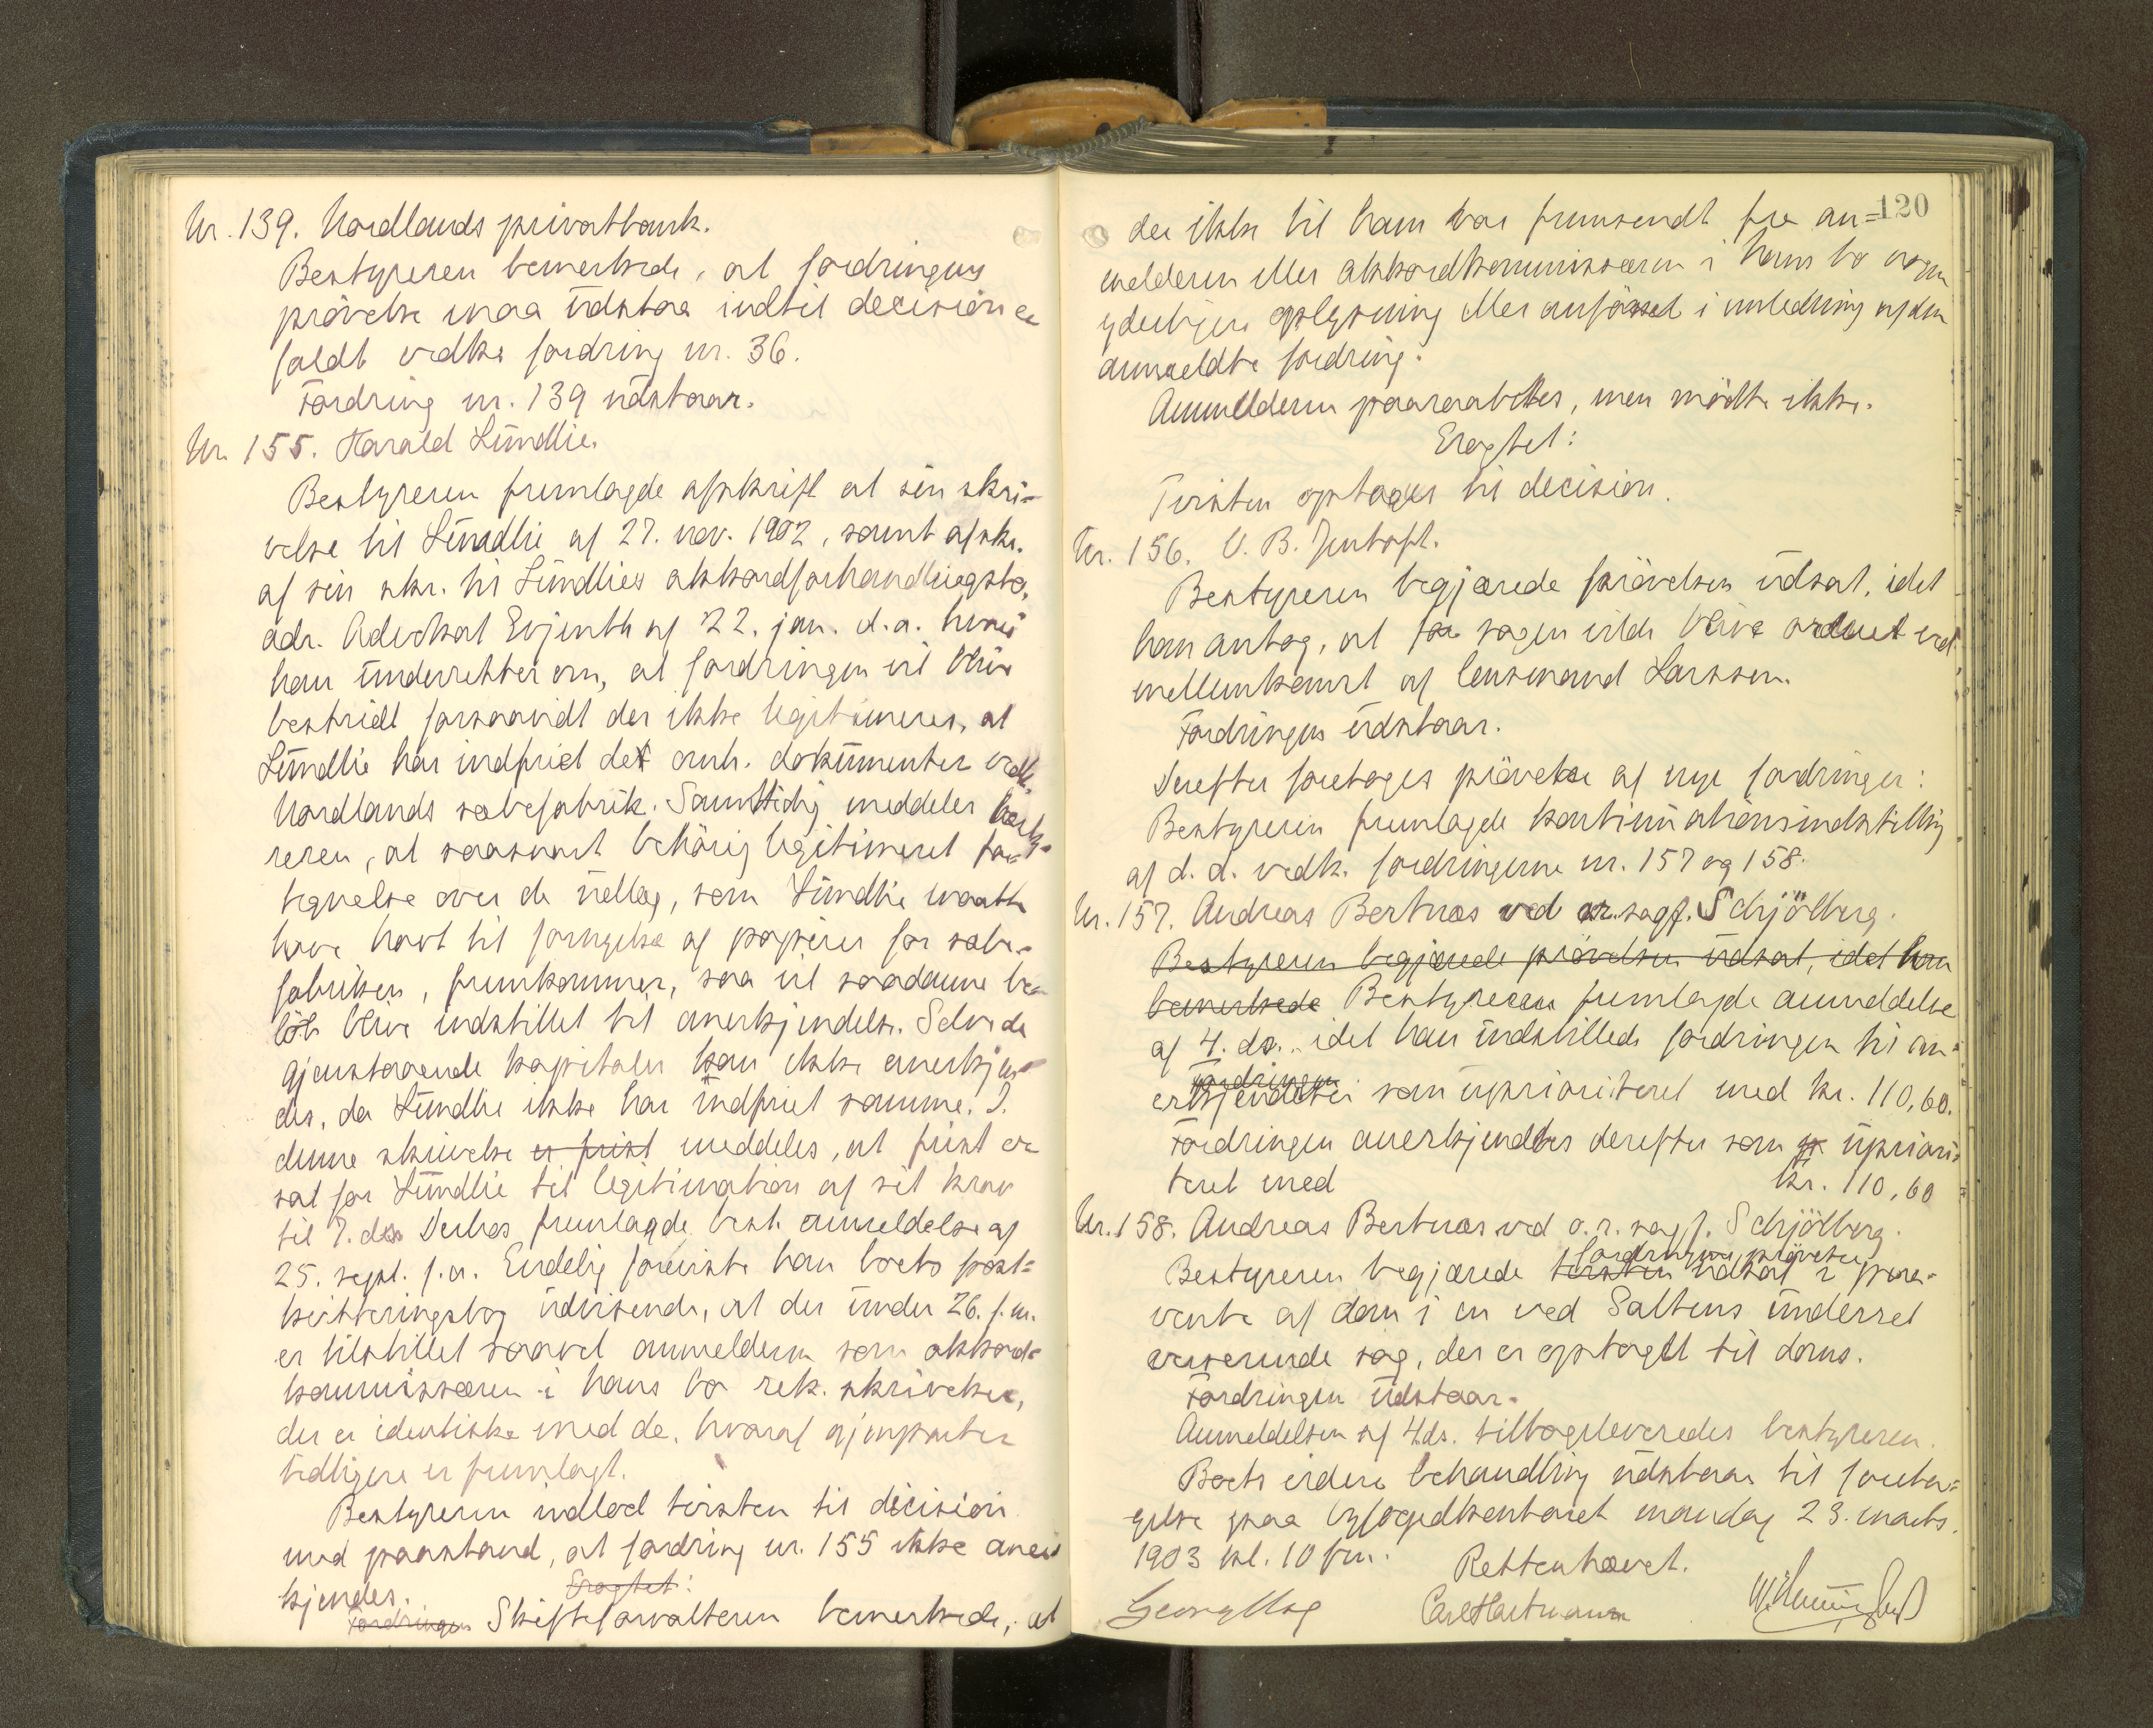 Nr. 139. Nordlands privatbank.
Bestyreren bemerkede, at fordringens
prövelse maa udstaa indtil decision er
faldt vedk. fordring nr. 36.
Fordring nr. 139 udstaar.
Nr. 155. Harald Lundlie.
Bestyreren fremlagde afskrift at sin skri-
velse til Lundlie af 27. nov. 1902, samt afskr.
af sin skr. til Lundlies akkordforhandlingsbo,
adr. Advokat Evjenth af 22. jan. d.a. hvori
han underretter om, at fordringen vil blive
bestridt forsaavidt der ikke legitimeres, at
Lundlie har indfriet det omh. dokumenter vedk.
Nordlands sæbefabrik. Samtidig meddeler besty-
reren, at saasnart behörig legitimeret for-
tegnelse over de udlæg, som Lundlie maatte
have havt til fornyelse af papirer for sæbe-
fabriken, fremkommer, saa vil saadanne be-
löb blive indstillet til anerkjendelse. Selve de
gjenstaaende kapitaler kan ikke anerkjen-
des, da Lundlie ikke har indfriet samme. I
denne skrivelse er frist meddeles, at frist er
sat for Lundlie til legitimation af sit krav
til 7. ds. Derhos fremlagde best. anmeldelse af
25. sept. f.a. Endelig foreviste han boets post-
kvitteringsbog udvisende, at der under 26. f.m.
er tilstillet saavel anmelderen som akkord-
kommissæren i hans bo rek. skrivelser,
der er identiske med de, hvoraf gjenparter
tidligere er fremlagt.
Bestyreren indlod tvisten til decision
med paastand, at fordring nr. 155 ikke aner-
kjendes.
Eragtet:
Fordringen Skifteforvalteren bemerkede, at
120
der ikke til ham var fremsendt fra an-
melderen eller akkordkommissæren i hans bo nogen
yderligere oplysning eller anförsel i anledning af den
anmeldte fordring.
Anmelderen paaraabtes, men mödte ikke.
Eragtet:
Tvisten optages til decision.
Nr. 156. V. B. Jentoft.
Bestyreren begjærede prövelsen udsat, idet
han antog, at for sagen vilde blive ordnet ved
mellemkomst af lensmand Larssen.
Fordringen udstaar.
Derefter foretoges prövelse af nye fordringer:
Bestyreren fremlagde kontinuationsindstilling
af d. d. vedk. fordringerne nr. 157 og 158.
Nr. 157. Andreas Bertnæs ved or. sagf. Schjölberg.
Bestyreren begjærede prövelsen udsat, idet han
bemerkede Bestyreren fremlagde anmeldelse
af 4. ds. idet han indstillede fordringen til an-
fordringen
erkjendelse som uprioriteret med kr. 110,60.
Fordringen anerkjendtes derefter som up upriori-
teret med kr. 110,60
Nr. 158. Andreas Bertnæs ved o.r. sagf. Schjölberg.
fordringens prövelse
Bestyreren begjærede tvisten udsat i paa-
vente af dom i en ved Saltens underret
verserende sag, der er optaget til doms.
Fordringen udstaar.
Anmeldelsen af 4. ds. tilbageleveredes bestyreren.
Boets videre behandling udstaar til foreta-
gelse paa byfogedkontoret mandag 23. marts.
1903 kl. 10 fm.
Retten hævet.
Carl Hartmann